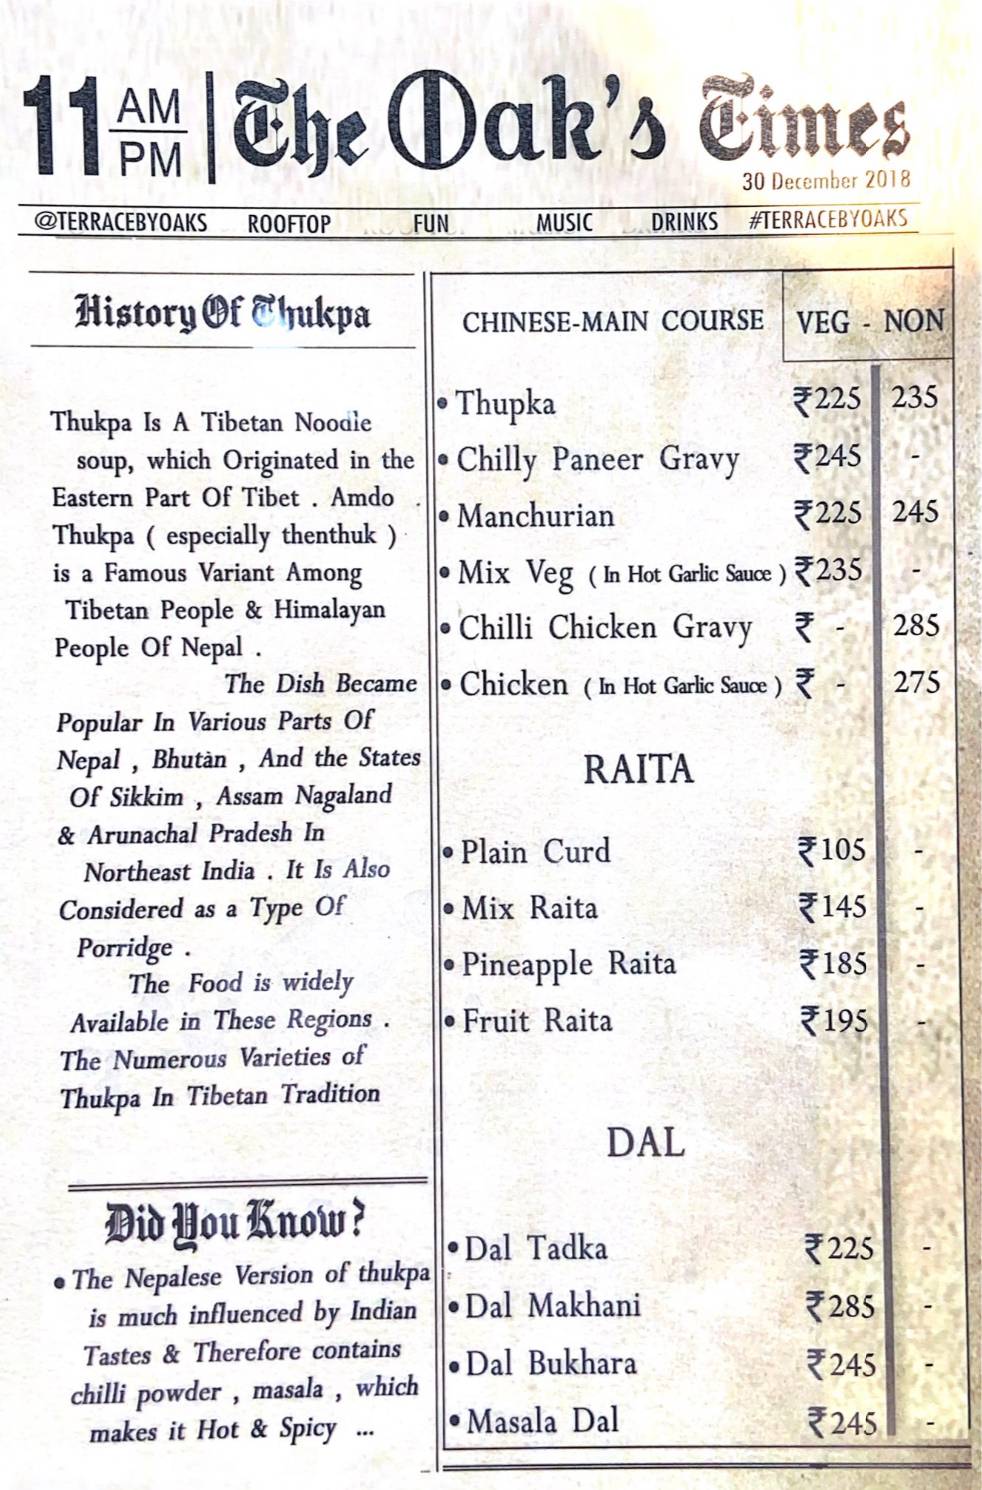 11 AM
PM
The Oak's Times
30 December 2018
@TERRACEBYOAKS ROOFTOP FUN MUSIC DRINKS #TERRACEBYOAKS
History Of Thukpa
Thukpa Is A Tibetan Noodle
soup, which Originated in the
Eastern Part Of Tibet . Amdo
Thukpa ( especially thenthuk )
is a Famous Variant Among
Tibetan People & Himalayan
People Of Nepal .
The Dish Became
Popular In Various Parts Of
Nepal , Bhutan , And the States
Of Sikkim , Assam Nagaland
& Arunachal Pradesh In
Northeast India . It Is Also
Considered as a Type Of
Porridge .
The Food is widely
Available in These Regions .
The Numerous Varieties of
Thukpa In Tibetan Tradition
Did You Know?
• The Nepalese Version of thukpa
is much influenced by Indian
Tastes & Therefore contains
chilli powder , masala , which
makes it Hot & Spicy ...
CHINESE-MAIN COURSE VEG - NON
• Thupka ₹225 235
• Chilly Paneer Gravy ₹245 -
• Manchurian ₹225 245
• Mix Veg ( In Hot Garlic Sauce ) ₹235 -
• Chilli Chicken Gravy ₹ - 285
• Chicken ( In Hot Garlic Sauce ) ₹ - 275
RAITA
• Plain Curd ₹105 -
• Mix Raita ₹145 -
• Pineapple Raita ₹185 -
• Fruit Raita ₹195 -
DAL
• Dal Tadka ₹225 -
• Dal Makhani ₹285 -
• Dal Bukhara ₹245 -
• Masala Dal ₹245 -